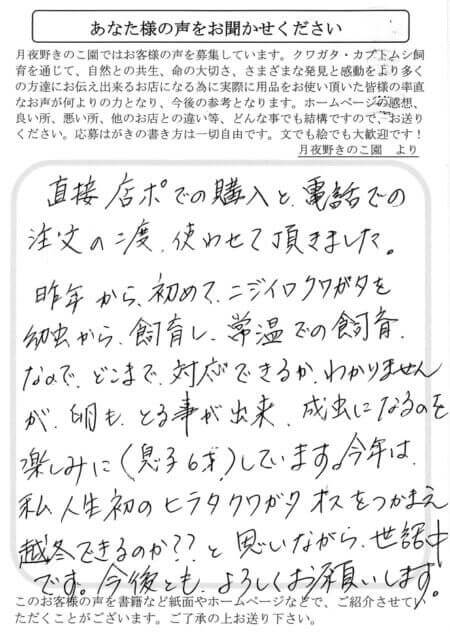 あなた様の声をお聞かせください
月夜野きのこ園ではお客様の声を募集しています。クワガタ・カブトムシ飼
育を通じて、自然との共生、命の大切さ、さまざまな発見と感動をより多く
の方達にお伝え出来るお店になる為に実際に用品をお使い頂いた皆様の率直
なお声が何よりの力となり、今後の参考となります。ホームページの感想、
良い所、悪い所、他のお店との違い等、どんな事でも結構ですので、お送り
ください。応募はがきの書き方は一切自由です。文でも絵でも大歓迎です！
月夜野きのこ園　より
直接店ポでの購入と、電話での
注文の二度、使わせて頂きました。
昨年から、初めて、ニジイロクワガタを
幼虫から、飼育し、常温での飼育、
なので、どこまで、対応できるか、わかりません
が、卵も、とる事が出来、成虫になるのを
楽しみに（息子6才）しています。今年は、
私、人生初のヒラタクワガタオスをつかまえ
越冬できるのか??と思いながら、世話中
です。今後とも、よろしくお願いします。
このお客様の声を書籍など紙面やホームページなどで、ご紹介させてい
ただくことがございます。ご了承の上お送り下さい。